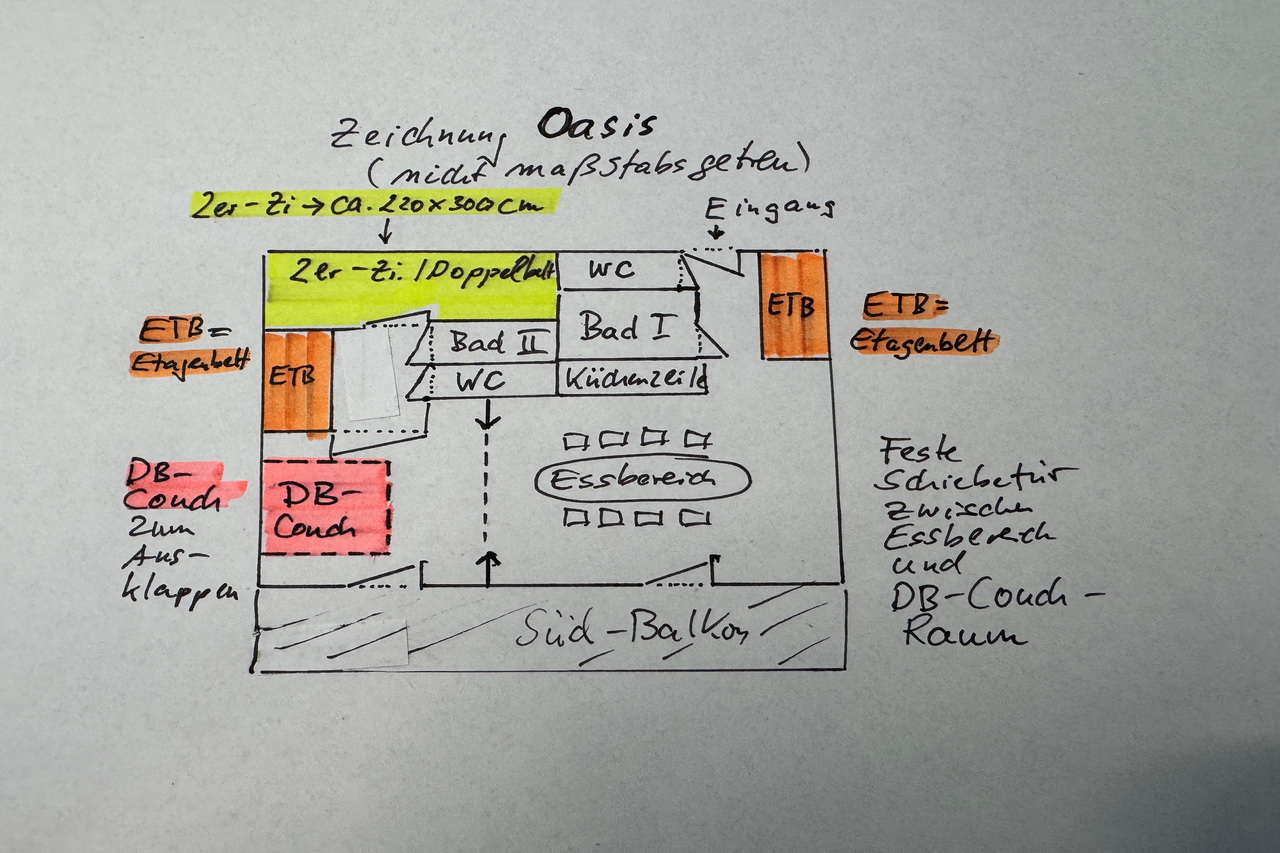 Zeichnung Oasis
(nicht maßstabsgetreu)
2er-Zi → ca. 220x300cm
Eingang
2er-Zi. / Doppelbett
WC
ETB
ETB =
Etagenbett
ETB =
Etagenbett
Bad I
Bad II
ETB
WC
Küchenzeile
DB-
Couch
zum
Aus-
klappen
DB-
Couch
Essbereich
Feste
Schiebetür
zwischen
Essbereich
und
DB-Couch-
Raum
Süd-Balkon